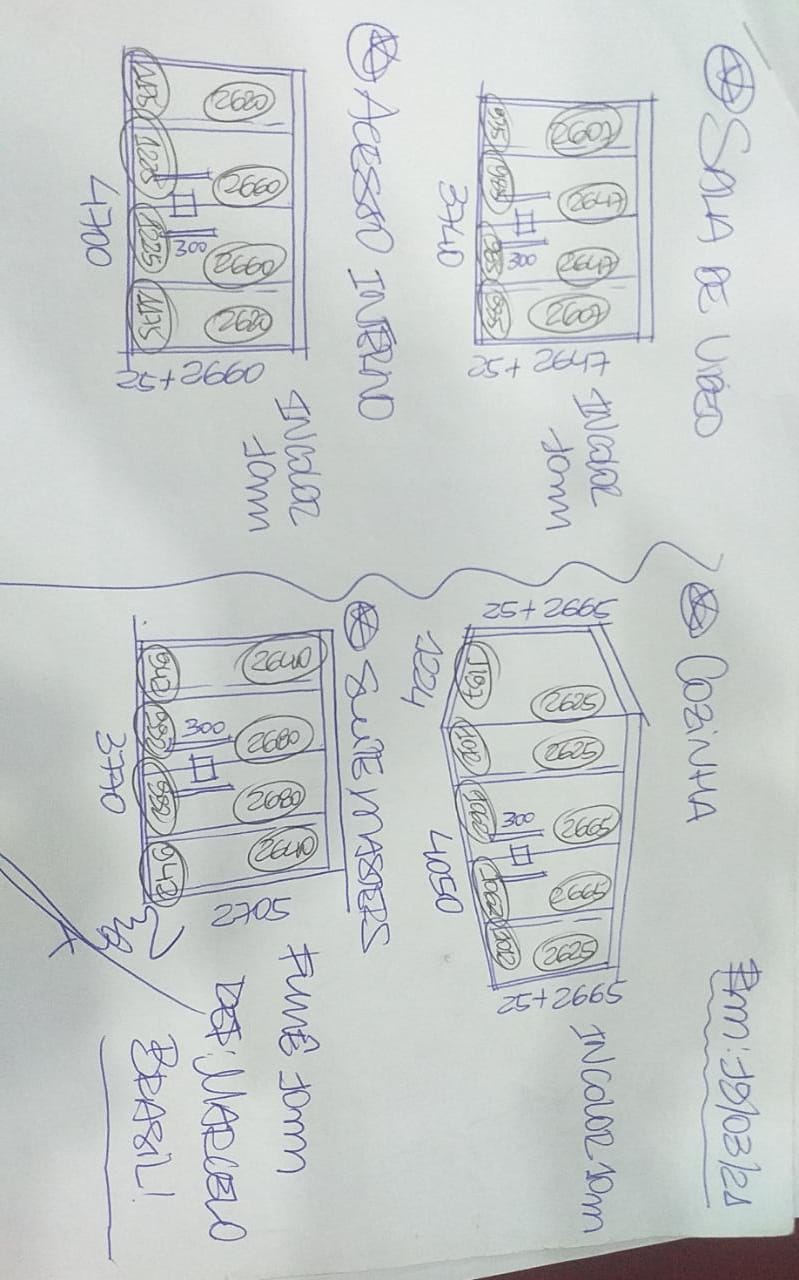 SALA DE VIDEO
2607
2647
2647
2607
935
985
985
935
300
3740
25+2647
INCOLOR
10mm
ACESSO INTERNO
2620
2660
2660
2620
1175
1225
1225
1175
300
4700
25+2660
INCOLOR
10mm
COZINHA
25+2665
1224
1187
2625
2625
2665
2665
2625
1012
1062
1062
1012
300
4050
25+2665
INCOLOR 10mm
SUITE MASTERS
2640
2680
2680
2640
942
992
992
942
300
3770
2705
FUMÊ 10mm
MARCELO
BRASIL!